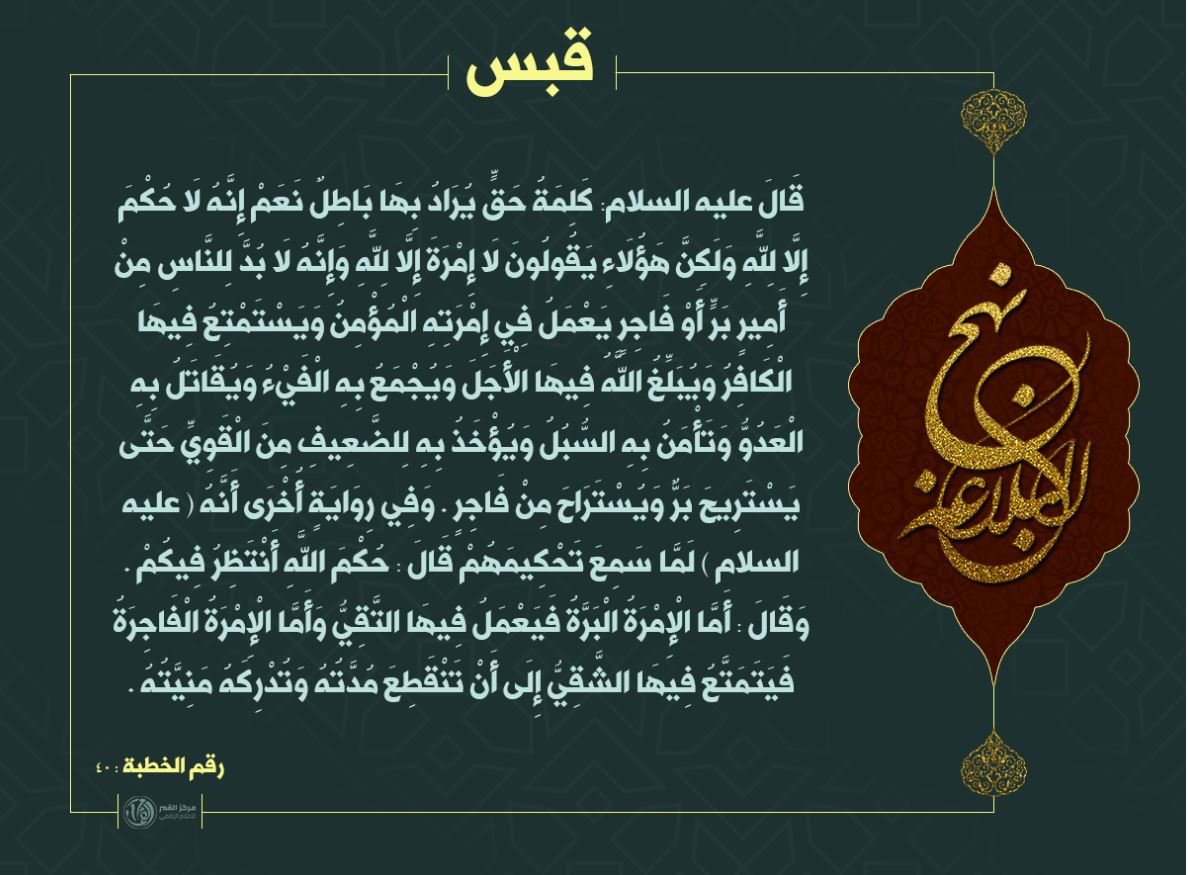 قبس
قَالَ عليه السلام: كَلِمَةُ حَقٍّ يُرَادُ بِهَا بَاطِلٌ نَعَمْ إِنَّهُ لَا حُكْمَ
إِلَّا لِلَّهِ وَلَكِنَّ هَؤُلَاءِ يَقُولُونَ لَا إِمْرَةَ إِلَّا لِلَّهِ وَإِنَّهُ لَا بُدَّ لِلنَّاسِ مِنْ
أَمِيرٍ بَرٍّ أَوْ فَاجِرٍ يَعْمَلُ فِي إِمْرَتِهِ الْمُؤْمِنُ وَيَسْتَمْتِعُ فِيهَا
الْكَافِرُ وَيُبَلِّغُ اللَّهُ فِيهَا الْأَجَلَ وَيُجْمَعُ بِهِ الْفَيْءُ وَيُقَاتَلُ بِهِ
الْعَدُوُّ وَتَأْمَنُ بِهِ السُّبُلُ وَيُؤْخَذُ بِهِ لِلضَّعِيفِ مِنَ الْقَوِيِّ حَتَّى
يَسْتَرِيحَ بَرٌّ وَيُسْتَرَاحَ مِنْ فَاجِرٍ . وَفِي رِوَايَةٍ أُخْرَى أَنَّهُ ( عليه
السلام ) لَمَّا سَمِعَ تَحْكِيمَهُمْ قَالَ : حُكْمَ اللَّهِ أَنْتَظِرُ فِيكُمْ .
وَقَالَ : أَمَّا الْإِمْرَةُ الْبَرَّةُ فَيَعْمَلُ فِيهَا التَّقِيُّ وَأَمَّا الْإِمْرَةُ الْفَاجِرَةُ
فَيَتَمَتَّعُ فِيهَا الشَّقِيُّ إِلَى أَنْ تَنْقَطِعَ مُدَّتُهُ وَتُدْرِكَهُ مَنِيَّتُهُ .
نهج
البلاغة
رقم الخطبة : ٤٠
مركز القمر
للاعلام الرقمي